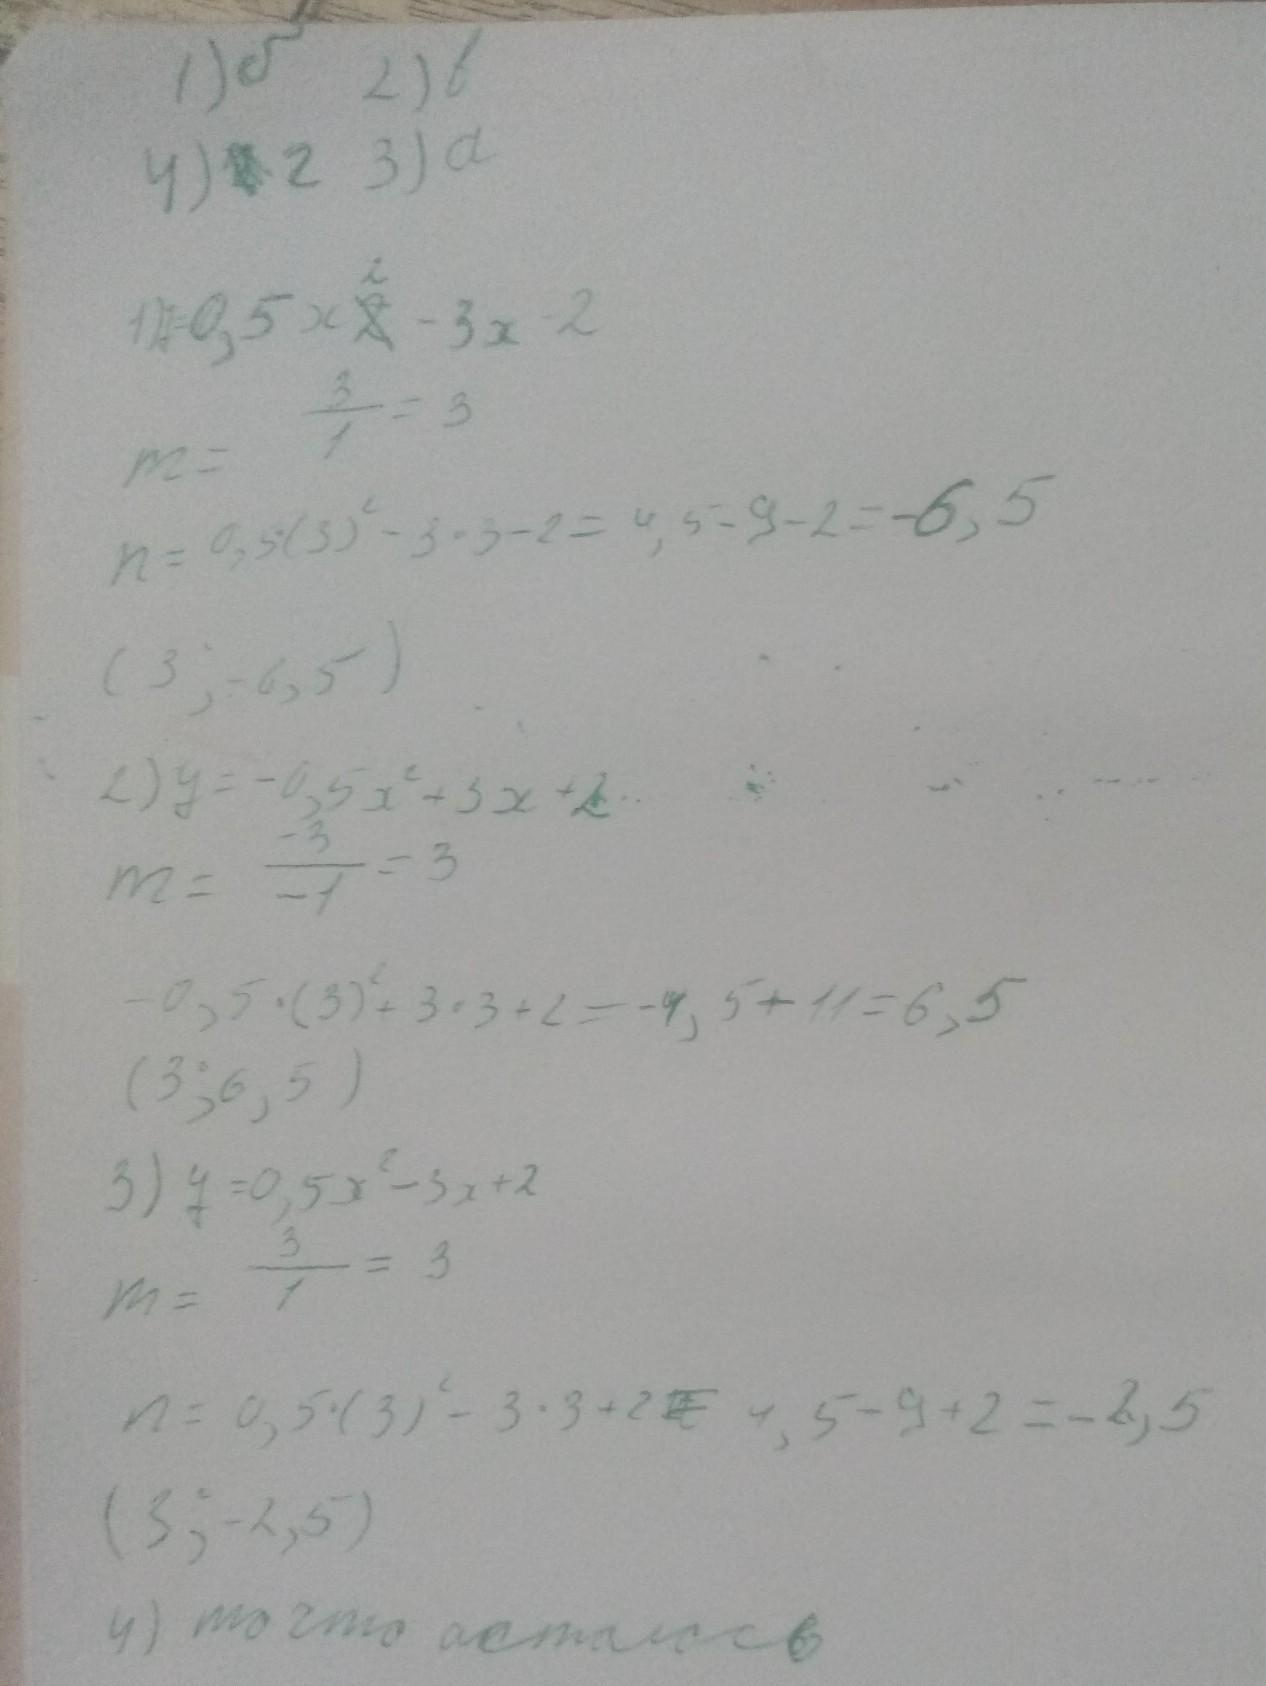 1) б 2) в
4) 2 3) а
1) = 0,5x² - 3x - 2
m = 3/1 = 3
n = 0,5·(3)² - 3·3 - 2 = 4,5 - 9 - 2 = -6,5
(3; -6,5)
2) y = -0,5x² + 3x + 2
m = -3/-1 = 3
-0,5·(3)² + 3·3 + 2 = -4,5 + 11 = 6,5
(3; 6,5)
3) y = 0,5x² - 3x + 2
m = 3/1 = 3
n = 0,5·(3)² - 3·3 + 2 = 4,5 - 9 + 2 = -2,5
(3; -2,5)
4) то что осталось